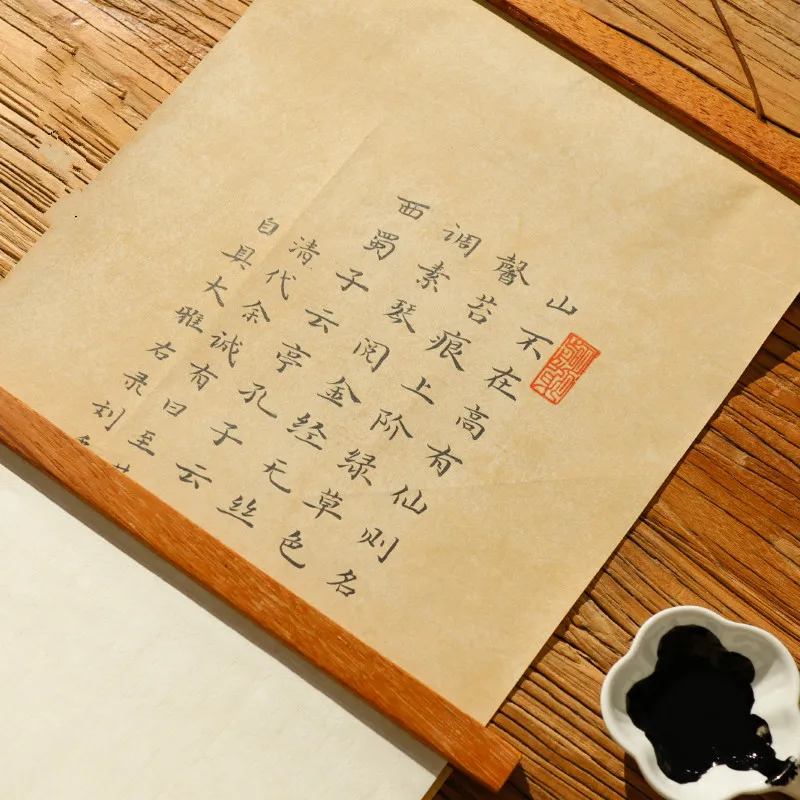 山不在高有仙则名
馨苔痕上阶绿草色
调素琴阅金经无丝
西蜀子云亭孔子云
清代余诚有曰至
自具大雅右录刘